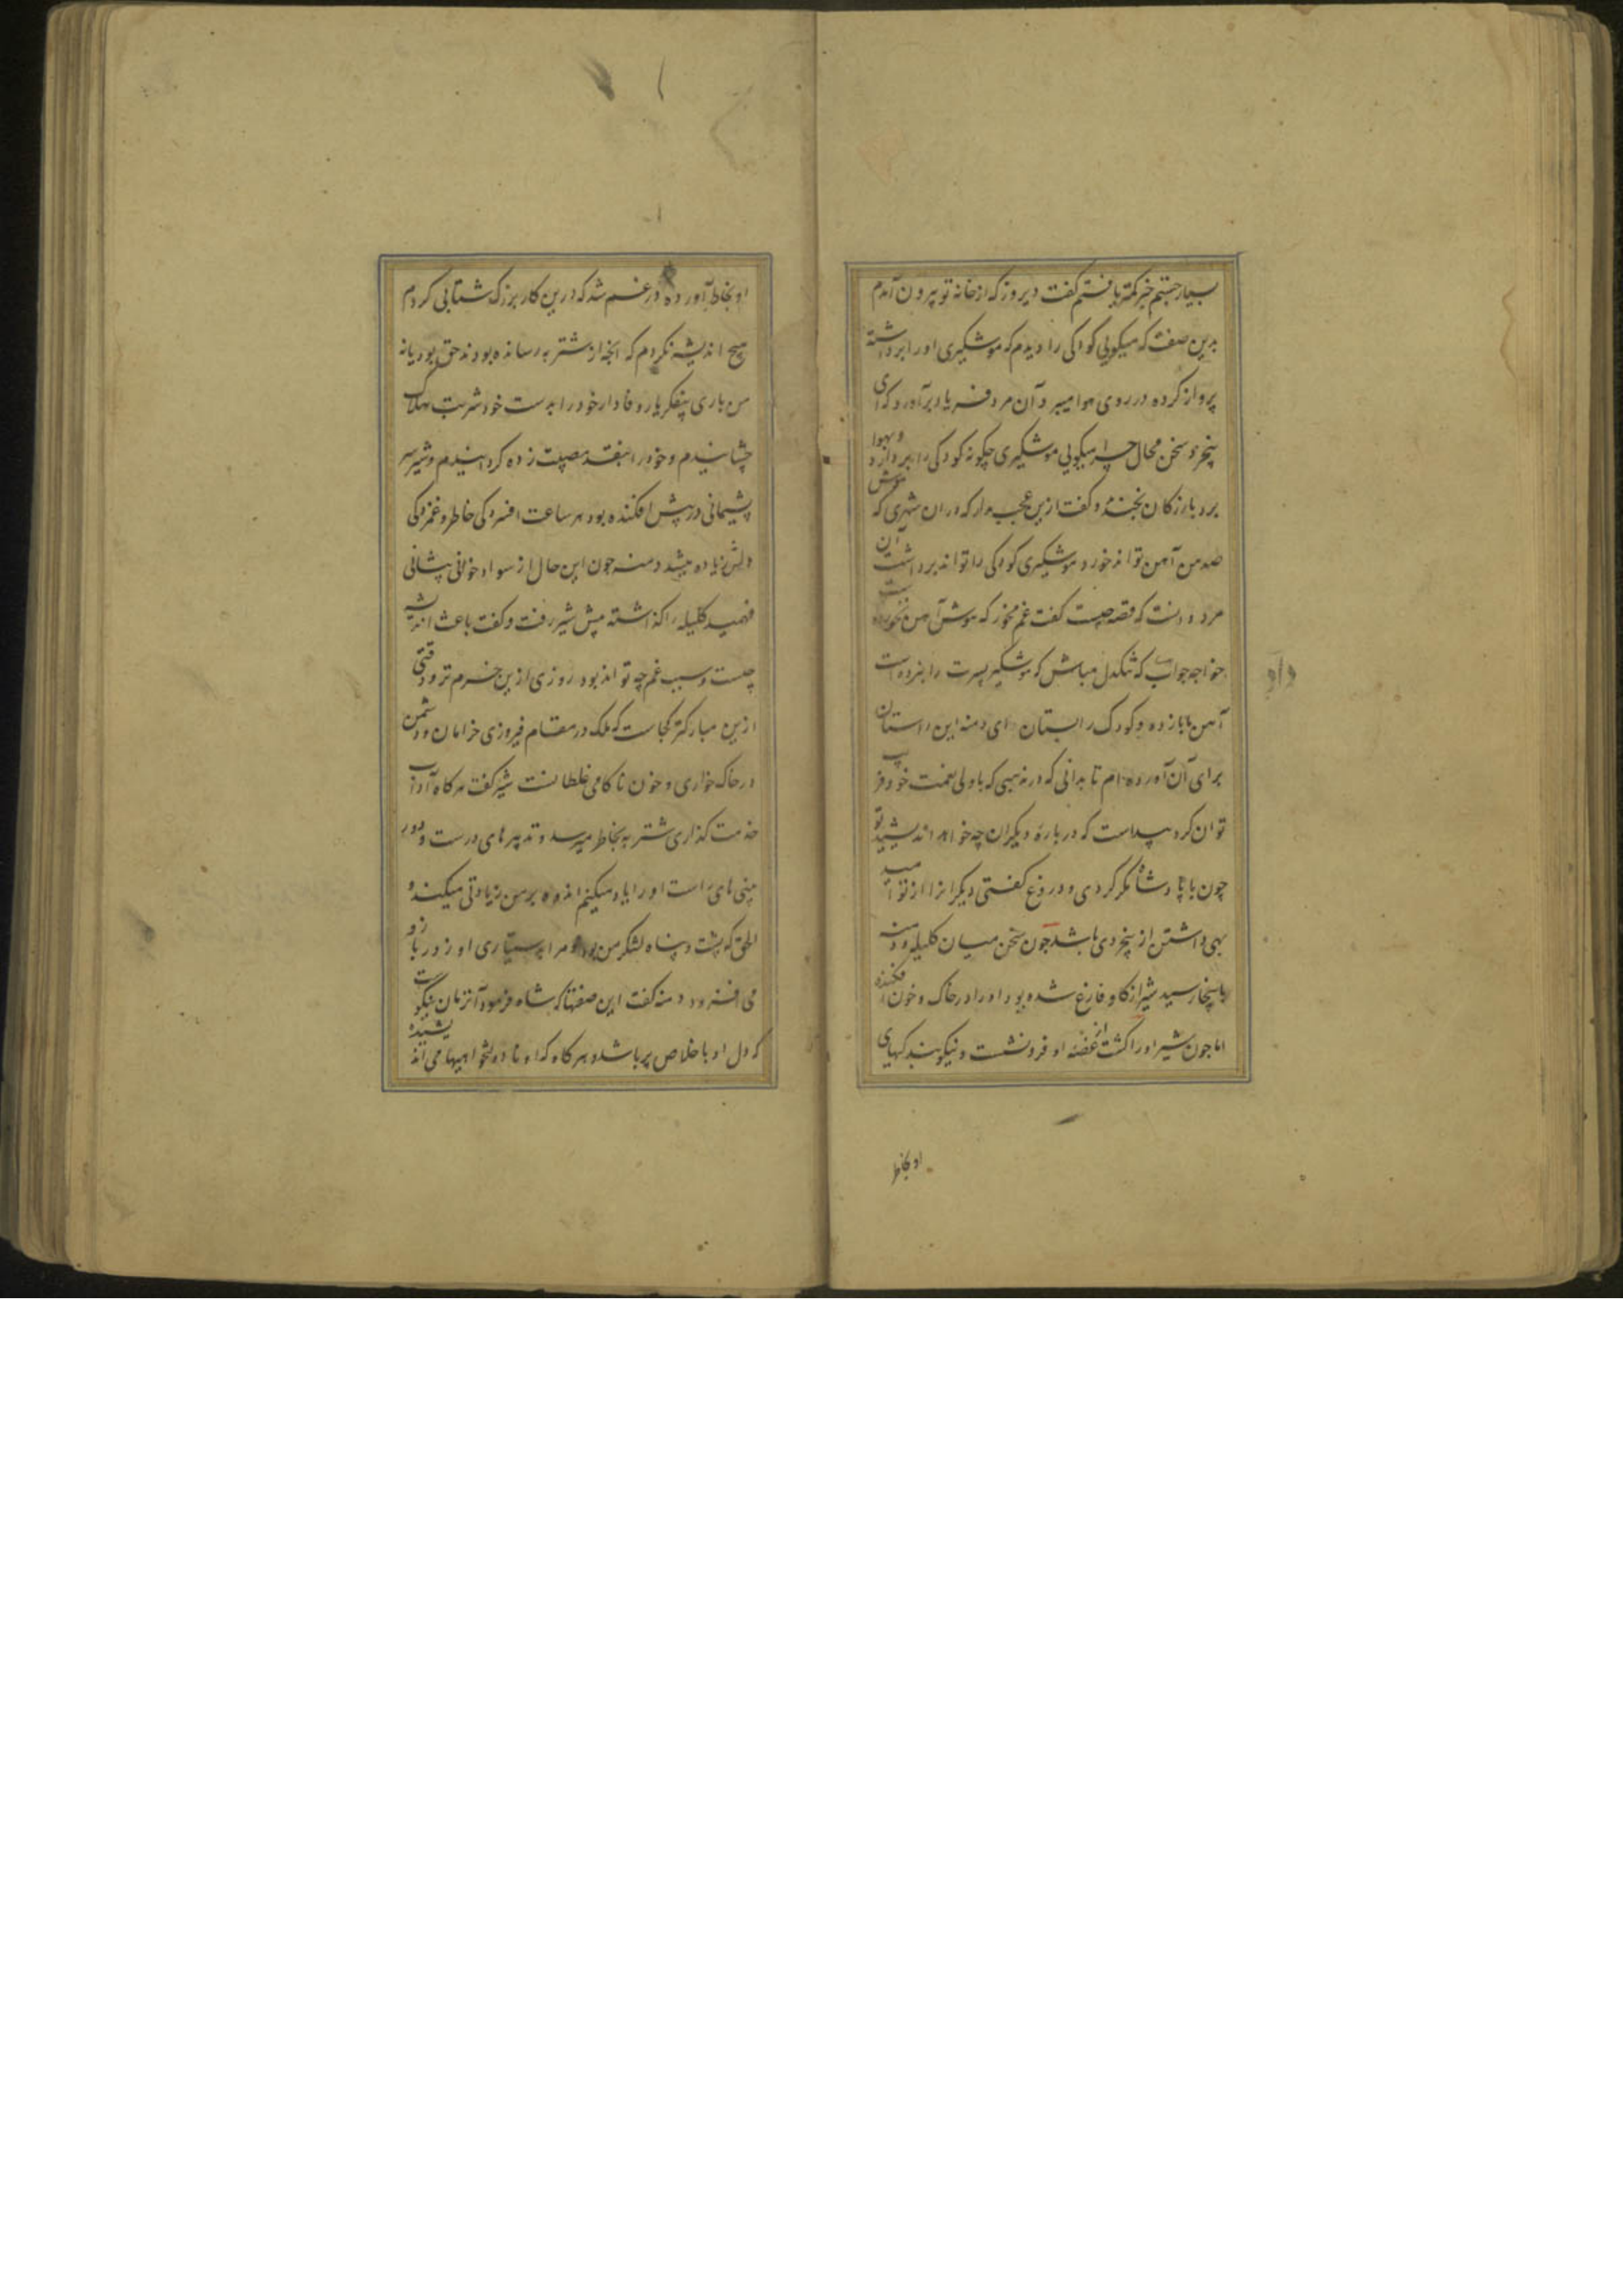 بسیار جستم خبر کمتر یافتم گفت دیروز که از خانه تو بیرون آمدم
بدین صفت که میگویی کودکی را دیدم که موشگیری او را برداشته
پرواز کرده در روی هوا میبرد آن مرد فریاد برآورد که ای
بیخرد سخن محال چرا میگویی موشگیری چگونه کودکی را بردارد و بهوا
برد بازرگان بخندید و گفت ازین عجب مدار که در آن شهری که موش
صد من آهن تواند خورد موشگیری کودکی را تواند برداشت آن
مرد دانست که قصه چیست گفت غم مخور که موش آهن نخورده است
خواجه جواب داد که تنگدل مباش که موشگیر پسرت را نبرده است
آهن ما باز ده و کودک را بستان ای دمنه این داستان
برای آن آورده ام تا بدانی که در مذهبی که با ولی نعمت خود فریب
توان کرد پیداست که درباره دیگران چه خواهد اندیشید تو
چون با پادشاه مکر کردی و دروغ گفتی دیگرانرا از تو امید
بهی داشتن از بیخردی باشد چون سخن میان کلیله و دمنه
باینجا رسید شیر از کاو فارغ شده بود او را در خاک و خون افکنده
اما چون شیر او را کشت از غصه او فرو نشست و نیکو بندگیهای
او بخاطر
داد
او بخاطر آورده در غم شد که درین کار بزرگ شتابی کردم
هیچ اندیشه نکردم که آنچه از شتربه رسانده بودند حق بود یا نه
من باری بیفکر یار وفادار خود را بدست خود شربت هلاک
چشانیدم و خود را اینقدر مصیبت زده گردانیدم و شیر سر
پشیمانی در پیش افکنده بود هر ساعت افسردگی خاطر و غمزدگی
دلش زیاده میشد دمنه چون این حال از سواد خوانی پیشانی
فهمید کلیله را گذاشته پیش شیر رفت و گفت باعث اندیشه
چیست و سبب غم چه تواند بود روزی ازین خرم تر و وقتی
ازین مبارکتر کجاست که ملک در مقام فیروزی خرامان و دشمن
در خاک خواری و خون ناکامی غلطانست شیر گفت هرگاه آداب
خدمت گذاری شتربه بخاطر میرسد و تدبیر های درست و دور
بینی های راست او را یاد میکنم اندوه بر من زیادتی میکند و
الحق که پشت و پناه لشکر من بود و مرا بدستیاری او زور بازو
می افزود دمنه گفت این صفتها که شاه فرمود آنزمان نیکوست
که دل او باخلاص پر باشد و هرگاه که او نادولتخواهیها می اندیشیده